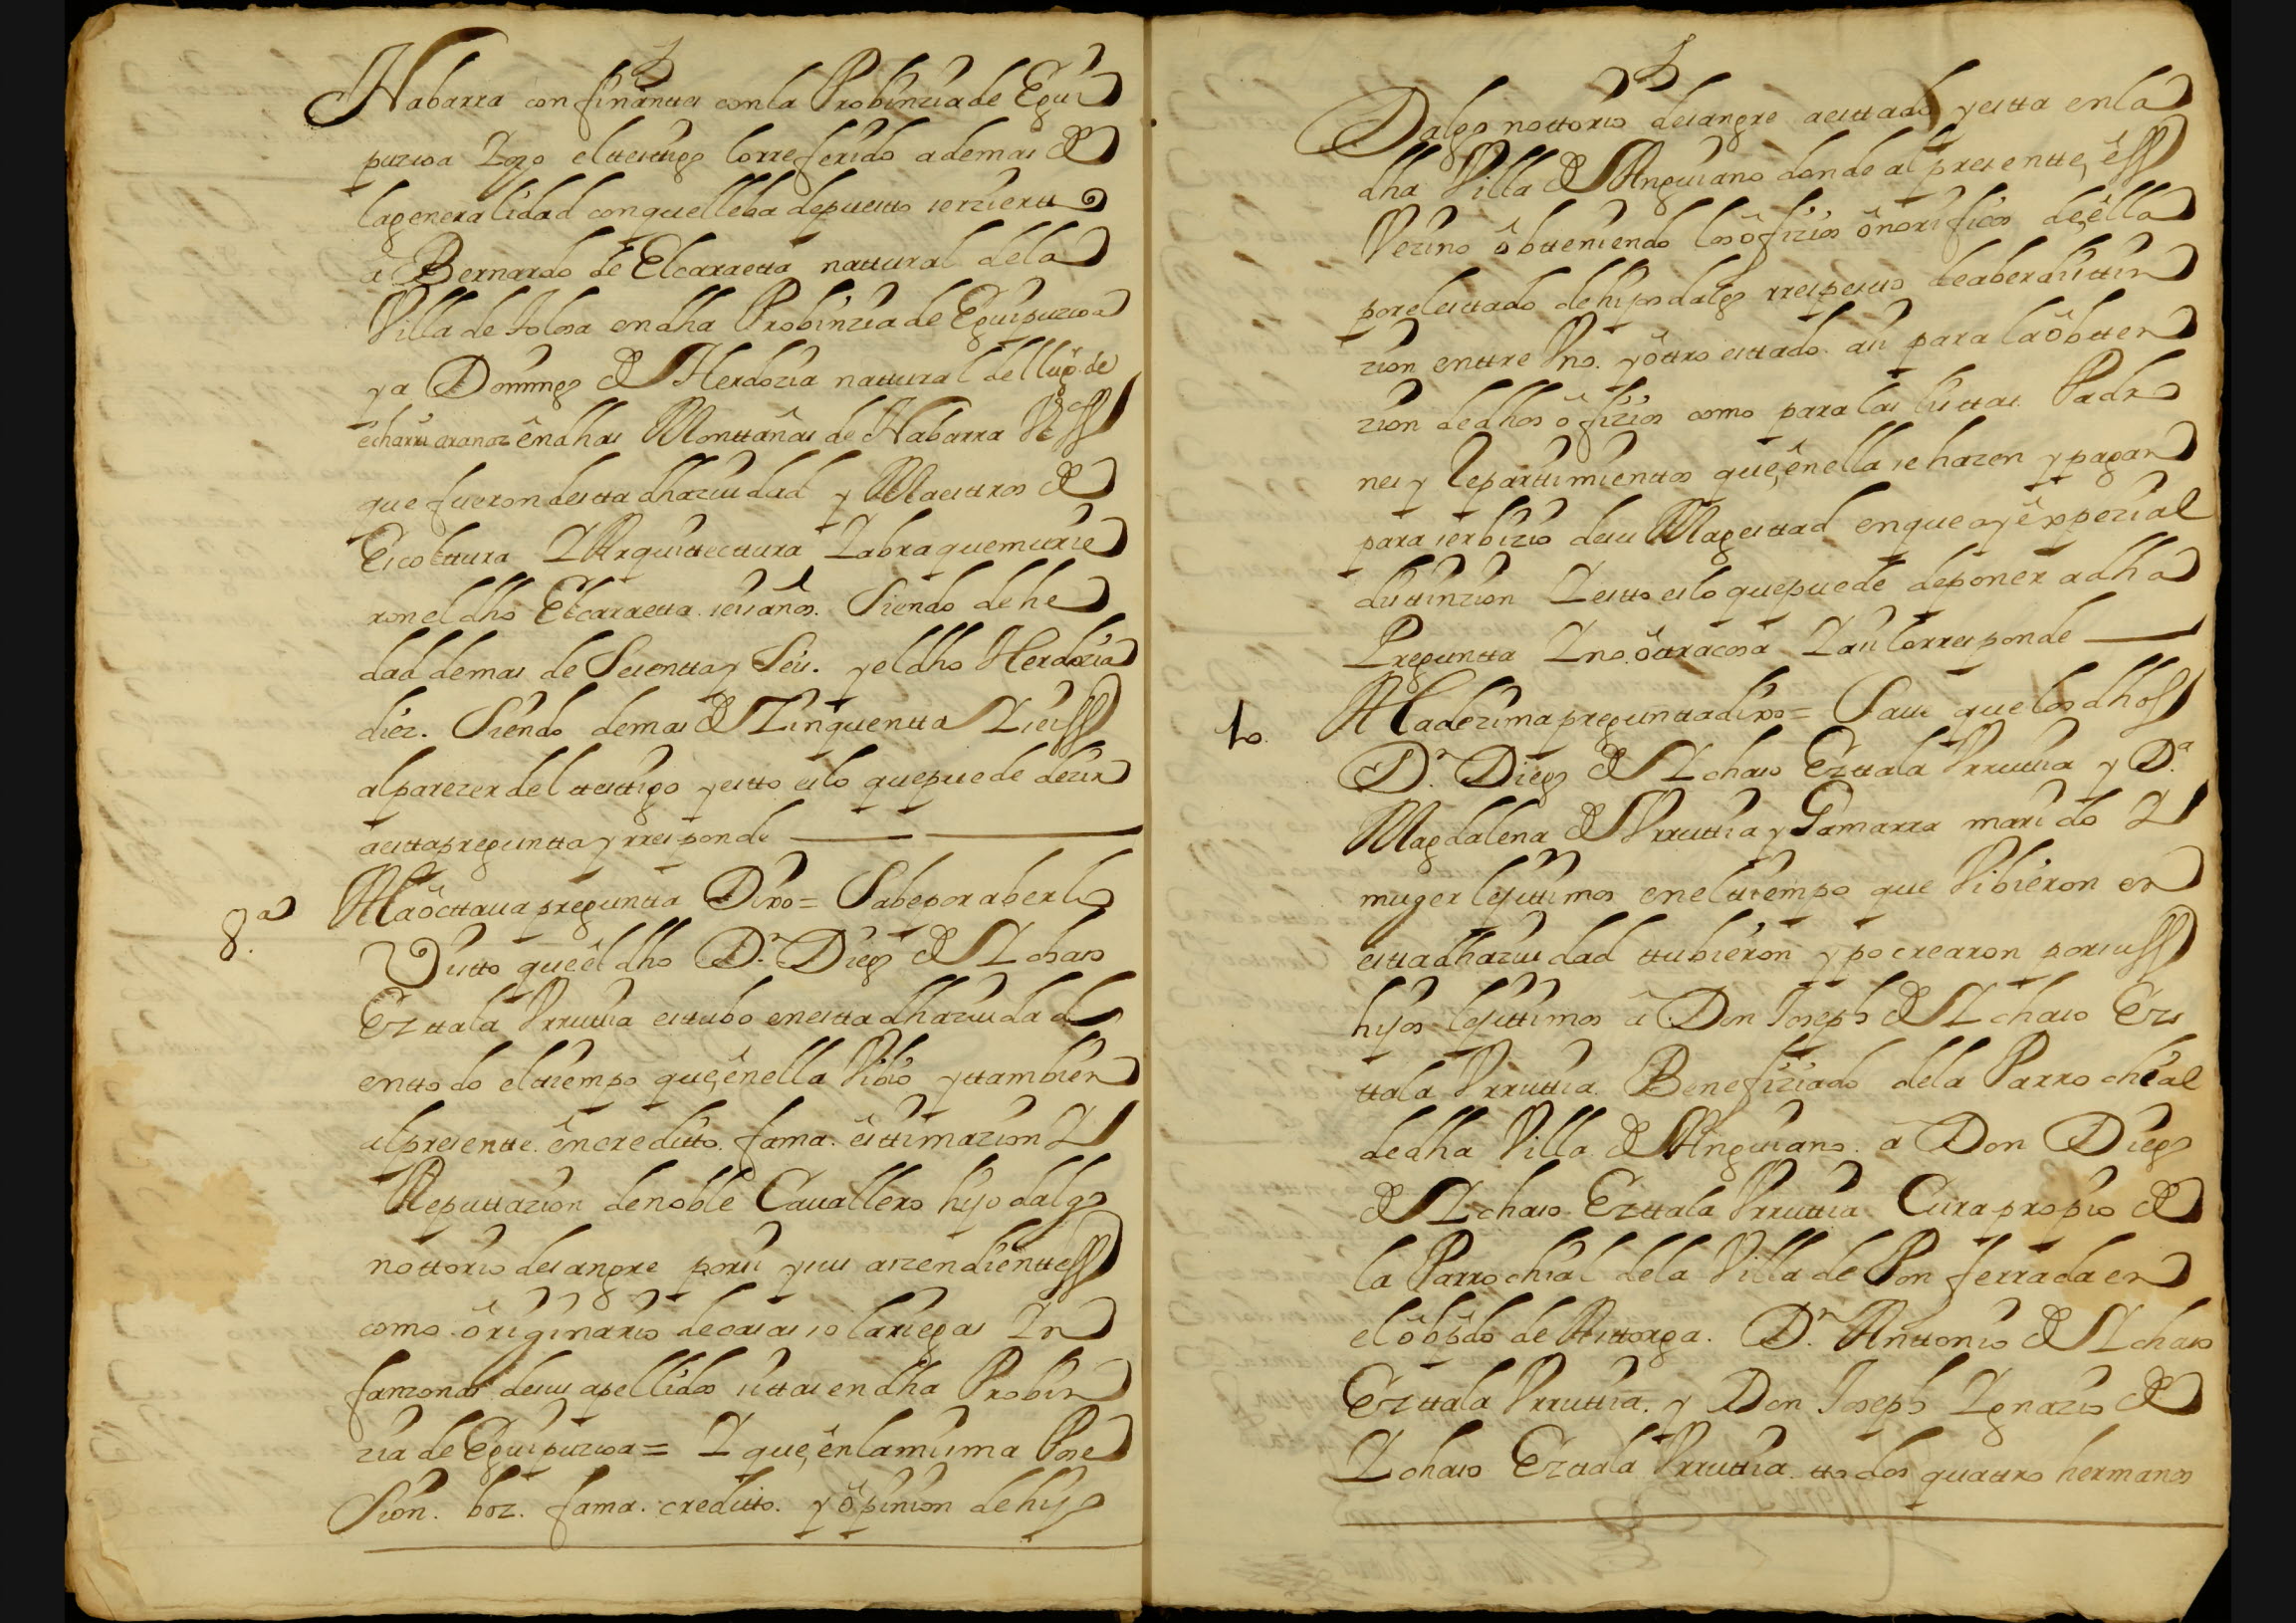 Nabarra confinantta con la Probinzia de Eguí
puzcoa Y oyo el testtigo lo rreferido ademas de
la generalidad con que lleba depuestto ser zierto
â Bernardo de Elcaraetta nattural de la
Villa de Tolosa en dha Probinzia de Eguipuzcoa
y a Domingo de Herdozia nattural del lug.r de
echarri aranaz ên dhas Monttañas de Nabarra V.os
que fueron de stta dha ziudad y Maesttros de
Escolttura Y Arquittecttura Y abra que murie
ron el dho Elcaraetta seis años. Siendo de he
dad de mas de Sesentta y Seis. y el dho Herdozia
diez. Siendo de mas de Zinquentta Y seis
al parezer del testtigo y estto es lo que puede dezir
a estta preguntta y rresponde
8.a A la ôcttaua preguntta Dixo = Sabe por aberlo
Vistto que êl dho D.n Diego de Ychaso
Ezttala Vrruttia esttubo en estta dha ziudad
en ttodo el tiempo que, ênella Vibio y ttambien
al presentte ên creditto. fama. êsttimazion Y
Reputtazion de noble Cauallero hijo dalgo
nottorio de sangre por si y sus aszendienttes
como ôriginario de casas solariegas Yn
fanzonas de sus apellidos sittas en dha Probin
zia de Eguipuzcoa = Y que, ên la misma Pose
Sion. boz. fama. creditto. y ôpinion de hijo
Dalgo nottorio de sangre a esttado y estta en la
dha Villa de Anguiano donde al presentte, ês
Vezino ôbtteniendo los ôfizios ônorificos de, êlla
por el esttado de hijos dalgo rrespectto de aber disttin
zion enttre Vno. y ôttro esttado. asi para la ôbtten
zion de dhos ôfizios como para las listtas. Padro
nes y Reparttimienttos que, ên ella se hazen y pagan
para serbizio de su Magesttad en que ay êxpezial
disttinzion Y estto es lo que puede deponer a dha
Preguntta Y no ôttra cosa Y asi lo rresponde
10 A la dezima preguntta dixo = Saue que los dhos
D.n Diego de Ychaso Ezttala Vrruttia y D.a
Magdalena de Vrruttia y Gamarra marido Y
muger lejittimos en el ttiempo que Vibieron en
estta dha ziudad ttubieron y pocrearon por sus
hijos lejittimos â Don Joseph de Ychaso Ezs
ttala Vrruttia. Benefiziado de la Parrochial
de dha Villa de Anguiano. â Don Diego
de Ychaso Ezttala Vrruttia Cura propio de
la Parrochial de la Villa de Ponferrada en
el ôbpdo de Asttorga. D.n Anttonio de Ychaso
Ezttala Vrruttia. y Don Joseph Ygnazio de
Ychaso Ezttala Vrruttia ttodos quattro hermanos